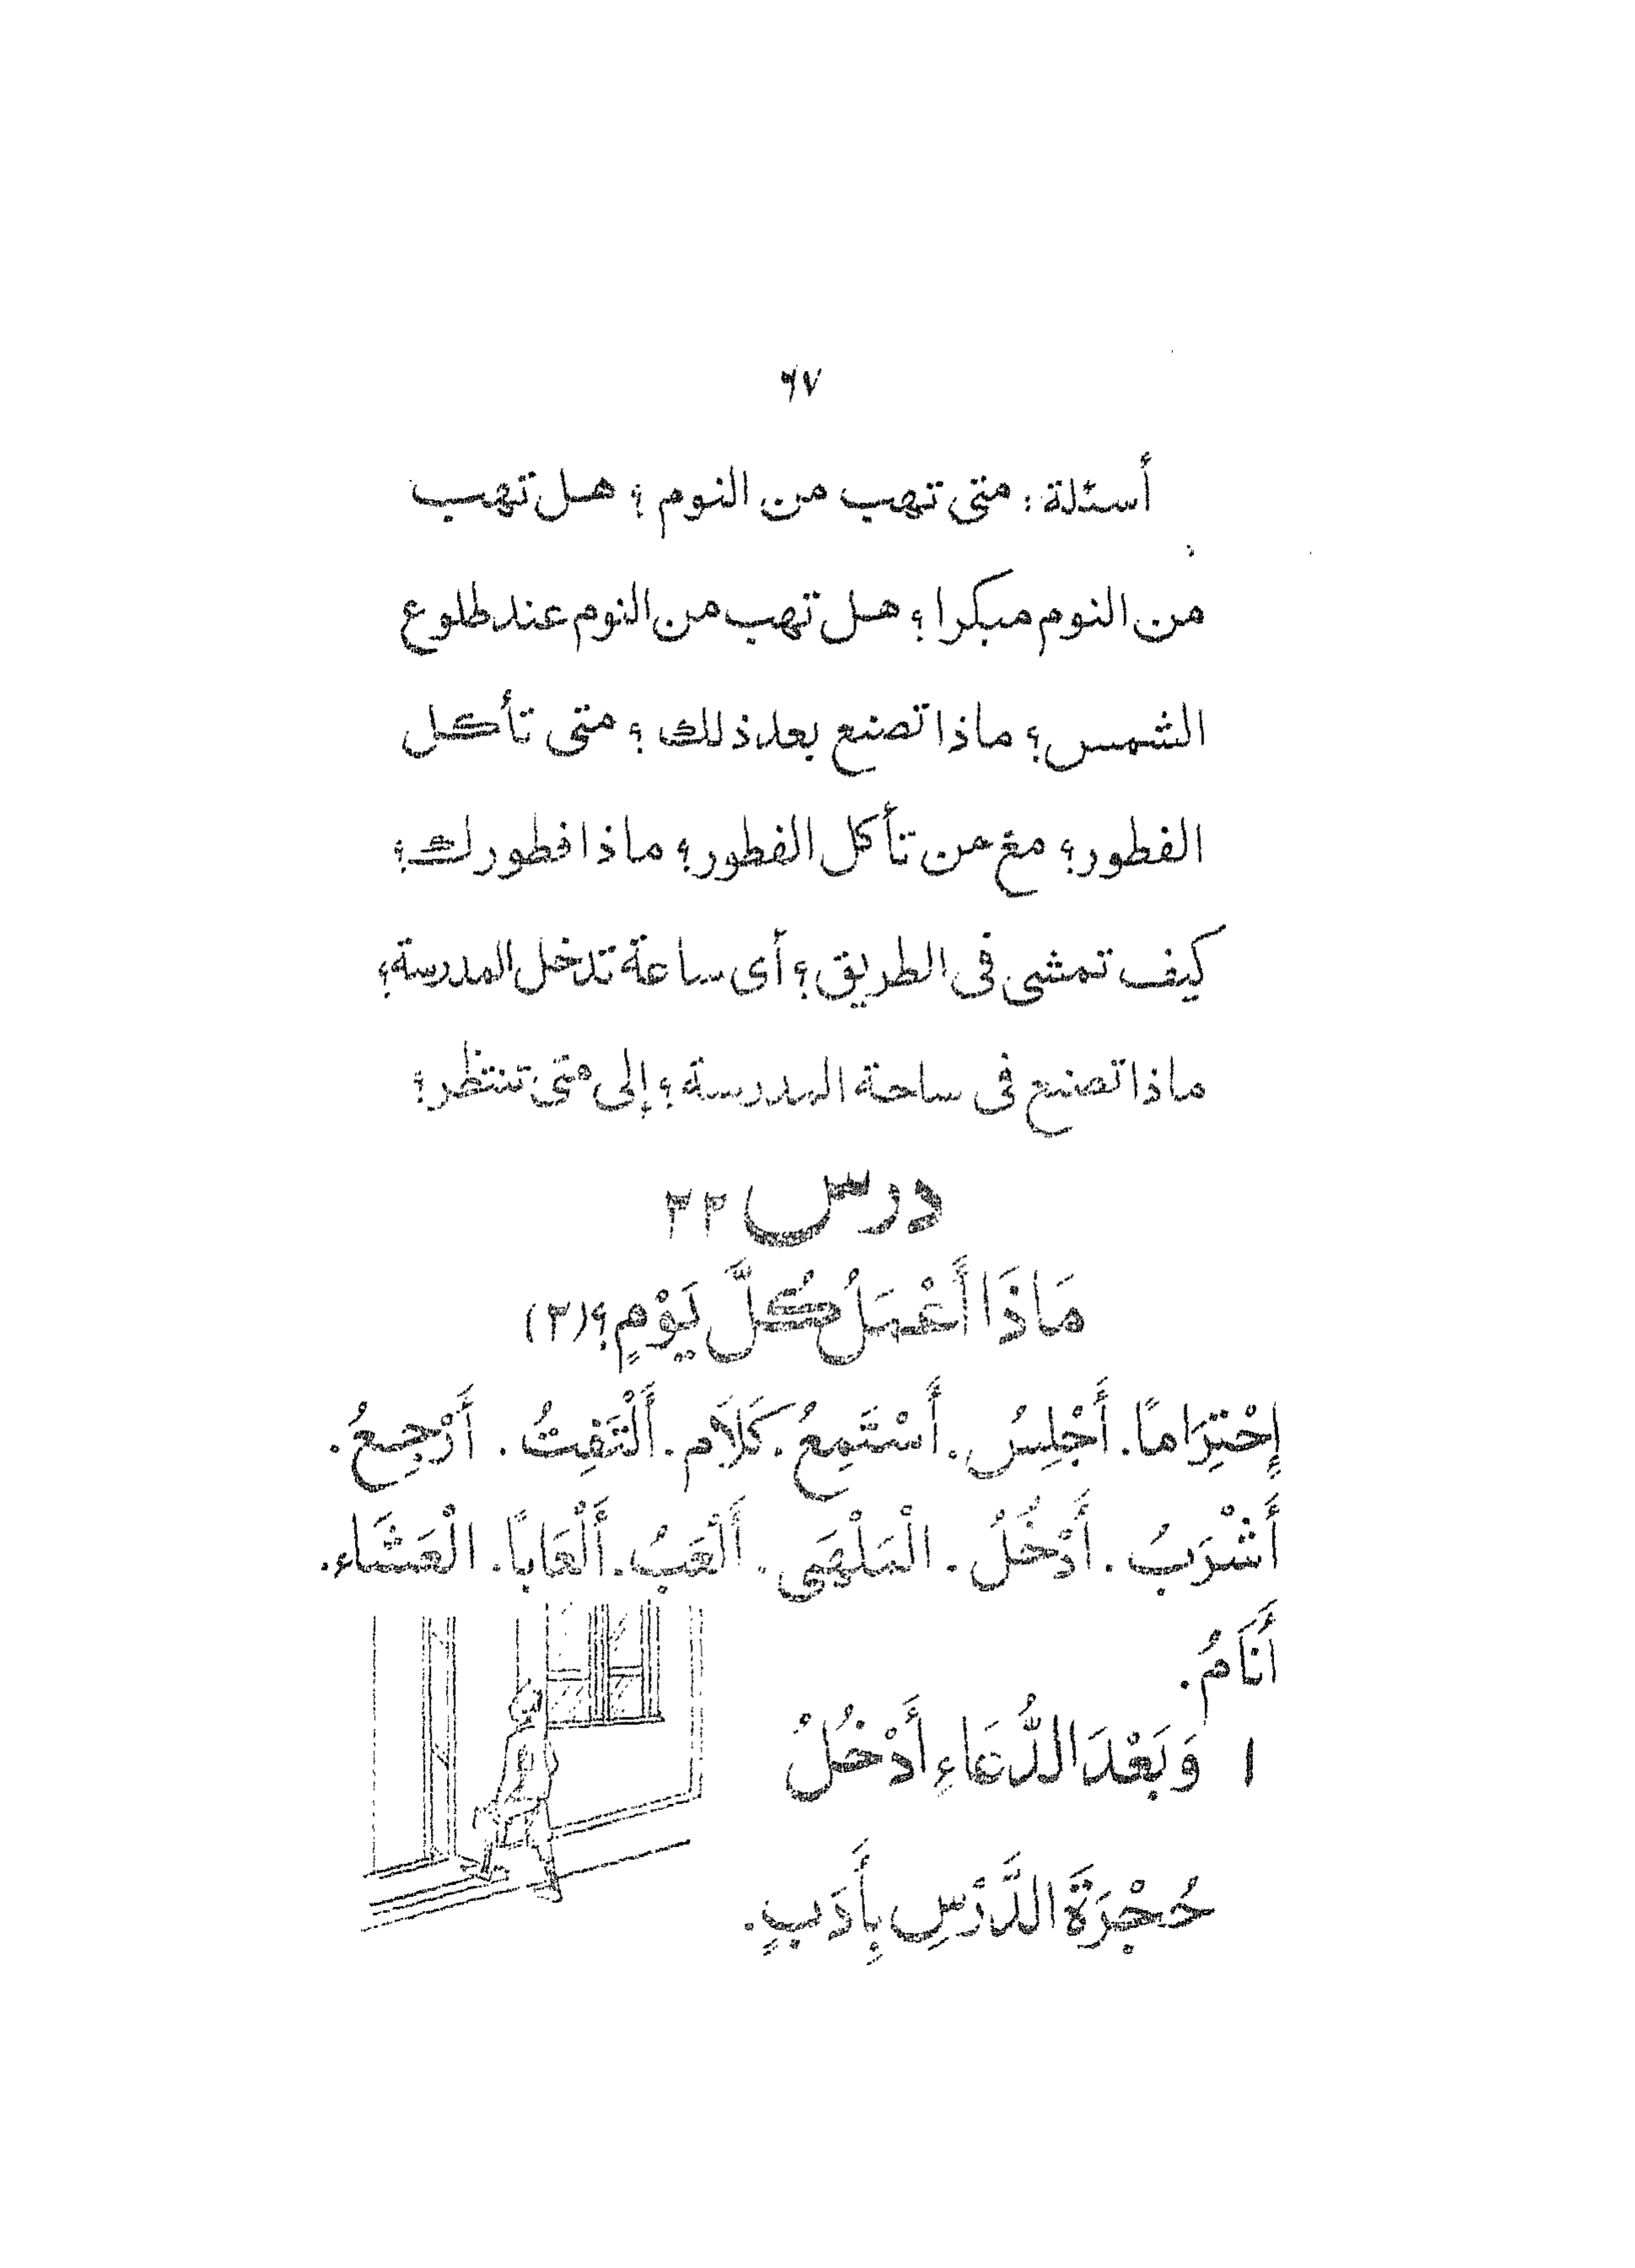 ٦٧
أسئلة: متى تهب من النوم؟ هل تهب
من النوم مبكرا؟ هل تهب من النوم عند طلوع
الشمس؟ ماذا تصنع بعد ذلك؟ متى تأكل
الفطور؟ مع من تأكل الفطور؟ ماذا فطورك؟
كيف تمشى فى الطريق؟ أى ساعة تدخل المدرسة؟
ماذا تصنع فى ساحة المدرسة؟ إلى متى تنتظر؟
درس ٢٣
مَاذَا أَعْمَلُ كُلَّ يَوْمٍ؟ (٢)
إِحْتِرَامًا. أَجْلِسُ. أَسْتَمِعُ. كَلَام. أَلْتَفِتُ. أَرْجِعُ.
أَشْرَبُ. أَدْخُلُ. الْمَلْهَى. أَلْعَبُ. أَلْعَابًا. الْعَشَاء.
أَنَامُ.
١ وَبَعْدَ الدُّعَاءِ أَدْخُلُ
حُجْرَةَ الدَّرْسِ بِأَدَبٍ.